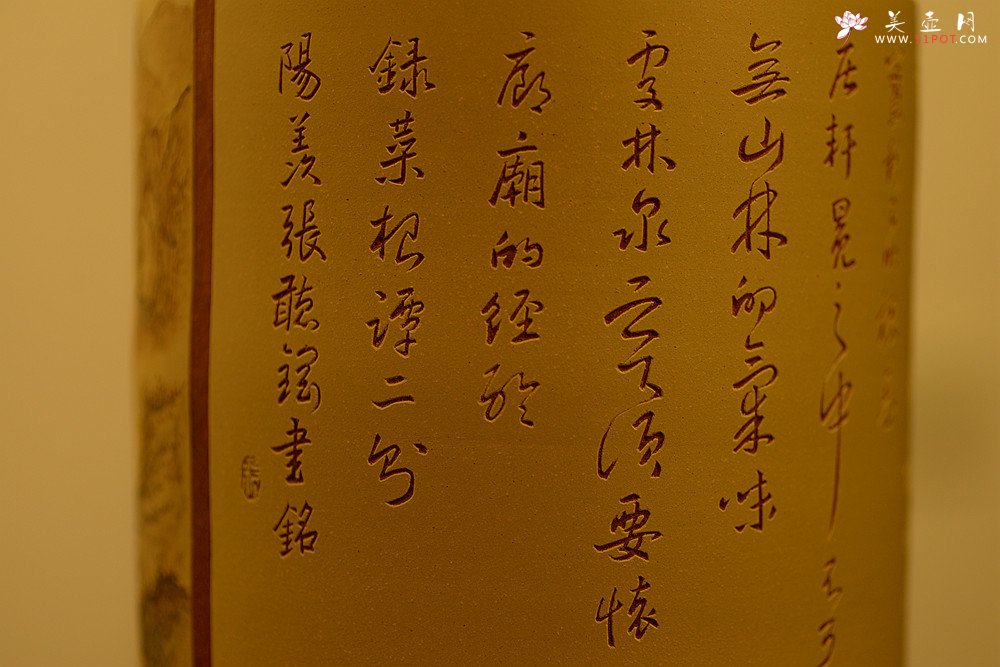 居軒冕之中不可
無山林的氣味
處林泉之下須要懷
廊廟的經綸
錄菜根譚二則
陽羨張聽鋼書銘
美壺网
WWW.51POT.COM